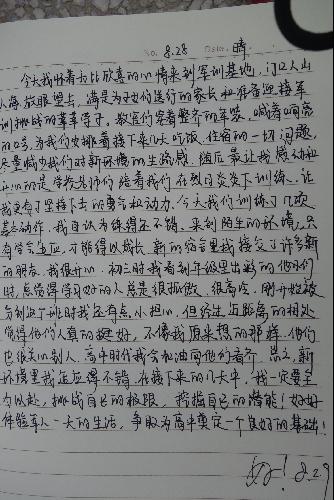 No. 8.28 Date. 晴
今天我怀着无比欣喜的心情来到军训基地,门口人山
人海,放眼望去,满是为子女们送行的家长和准备迎接军
训挑战的莘莘学子。教官们穿着整齐的军装,喊着响亮
的口号,为我们安排着接下来几天吃饭、住宿的一切问题,
尽量减少我们对新环境的生疏感。随后最让我感动和
的是学校老师们陪着我们在烈日炎炎下训练,让
我更有了坚持下去的勇气和动力。今天我们训练了几项
基本动作,我自认为练得还不错。来到陌生的环境,只
有学会适应,才能得以成长。新的宿舍里我接交了许多新
的朋友,我很开心。初三时我看到年级里出彩的他们
时,总觉得学习好的人总是很孤傲、很高冷。刚开始被
分到这个班时我还有点小担心,但经过近距离的相处
觉得他们人真的挺好,不像我原来想的那样,他们
也很关心别人。高中时代我会加油向他们看齐。总之,新
环境里我适应得不错,在接下来的几天中,我一定要全
力以赴,挑战自己的极限,挖掘自己的潜能!好好
体验军人一天的生活,争取为高中奠定一个良好的基础!
好! 8.29